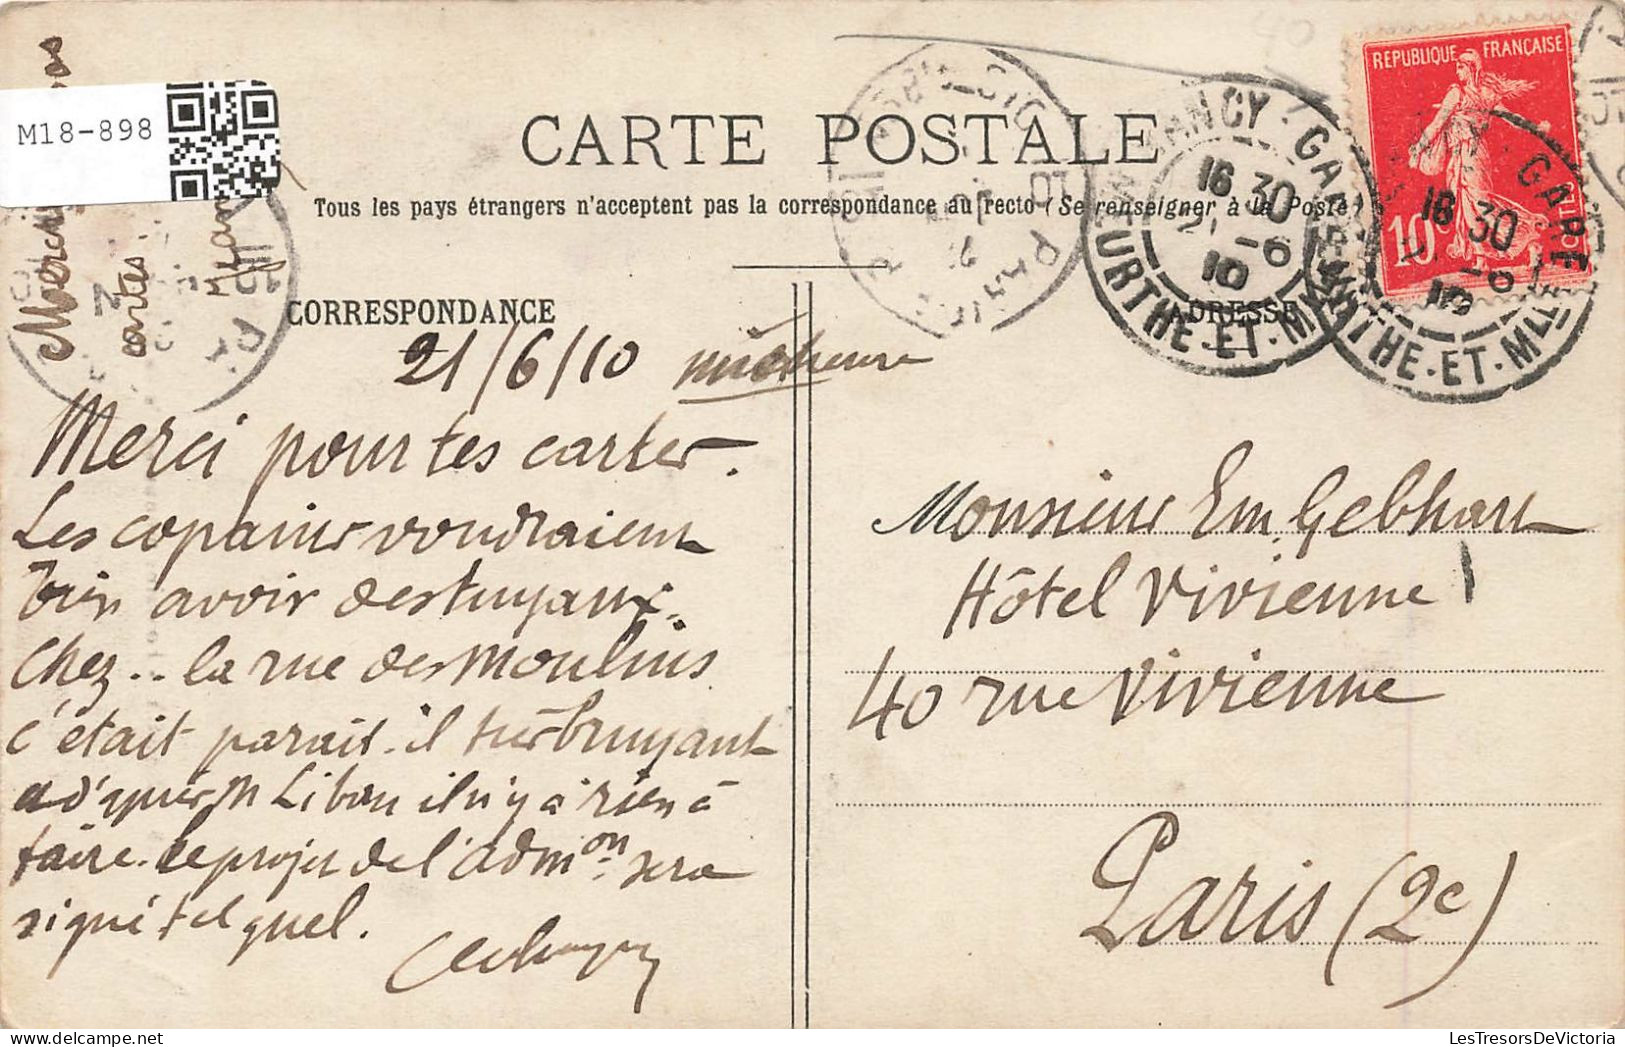 M18-898
CARTE POSTALE
Tous les pays étrangers n'acceptent pas la correspondance au recto (Se renseigner à la Poste)
REPUBLIQUE FRANÇAISE
10c
POSTES
NANCY - GARE
16 30
21 -6
10
MEURTHE-ET-MLLE
NANCY - GARE
16 30
21 -6
10
MEURTHE-ET-MLLE
CORRESPONDANCE
ADRESSE
21/6/10
Merci
cartes
Merci pour tes cartes.
Les copains voudraient
bien avoir des tuyaux.
Chez.. la rue des Moulins
c'était parait-il très bruyant
d'après M Libou il n'y a rien à
faire. le projet de l'admon sera
signé tel quel.
Monsieur Em. Gebhart
Hôtel Vivienne
40 rue Vivienne
Paris (2e)
LesTresorsDeVictoria.com